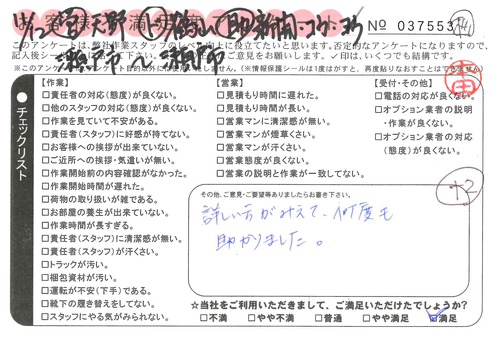 № 037553
このアンケートは、弊社作業スタッフのレベル向上に役立てたいと思います。否定的なアンケートになりますので、
記入後シー
ご意見をお願いします。✓印は、いくつでも結構です。
(※情報保護シールは1度がすと、再度貼りなおすことはできません)
チェックリスト
【作業】
□責任者の対応(態度)が良くない。
□他のスタッフの対応(態度)が良くない。
□作業を見ていて不安がある。
□責任者(スタッフ)に好感が持てない。
□お客様への挨拶が出来ていない。
□ご近所への挨拶・気遣いが無い。
□作業開始前の内容確認がなかった。
□作業開始時間が遅れた。
□荷物の取り扱いが雑である。
□お部屋の養生が出来ていない。
□作業時間が長すぎる。
□責任者(スタッフ)に清潔感が無い。
□責任者(スタッフ)が汗くさい。
□トラックが汚い。
□梱包資材が汚い。
□運転が不安(下手)である。
□靴下の履き替えをしてない。
□スタッフにやる気がみられない。
【営業】
□見積もり時間に遅れた。
□見積もり時間が長い。
□営業マンに清潔感が無い。
□営業マンが煙草くさい。
□営業マンが汗くさい。
□営業態度が良くない。
□営業の説明と作業が一致してない。
【受付・その他】
□電話の対応が良くない。
□オプション業者の説明
・作業が良くない。
□オプション業者の対応
(態度)が良くない。
その他、ご意見・ご要望等ありましたらお書き下さい。
詳しい方がみえて、何度も
助かりました。
+2
☆当社をご利用いただきまして、ご満足いただけたでしょうか?
□不満 □やや不満 □普通 □やや満足 ☑満足